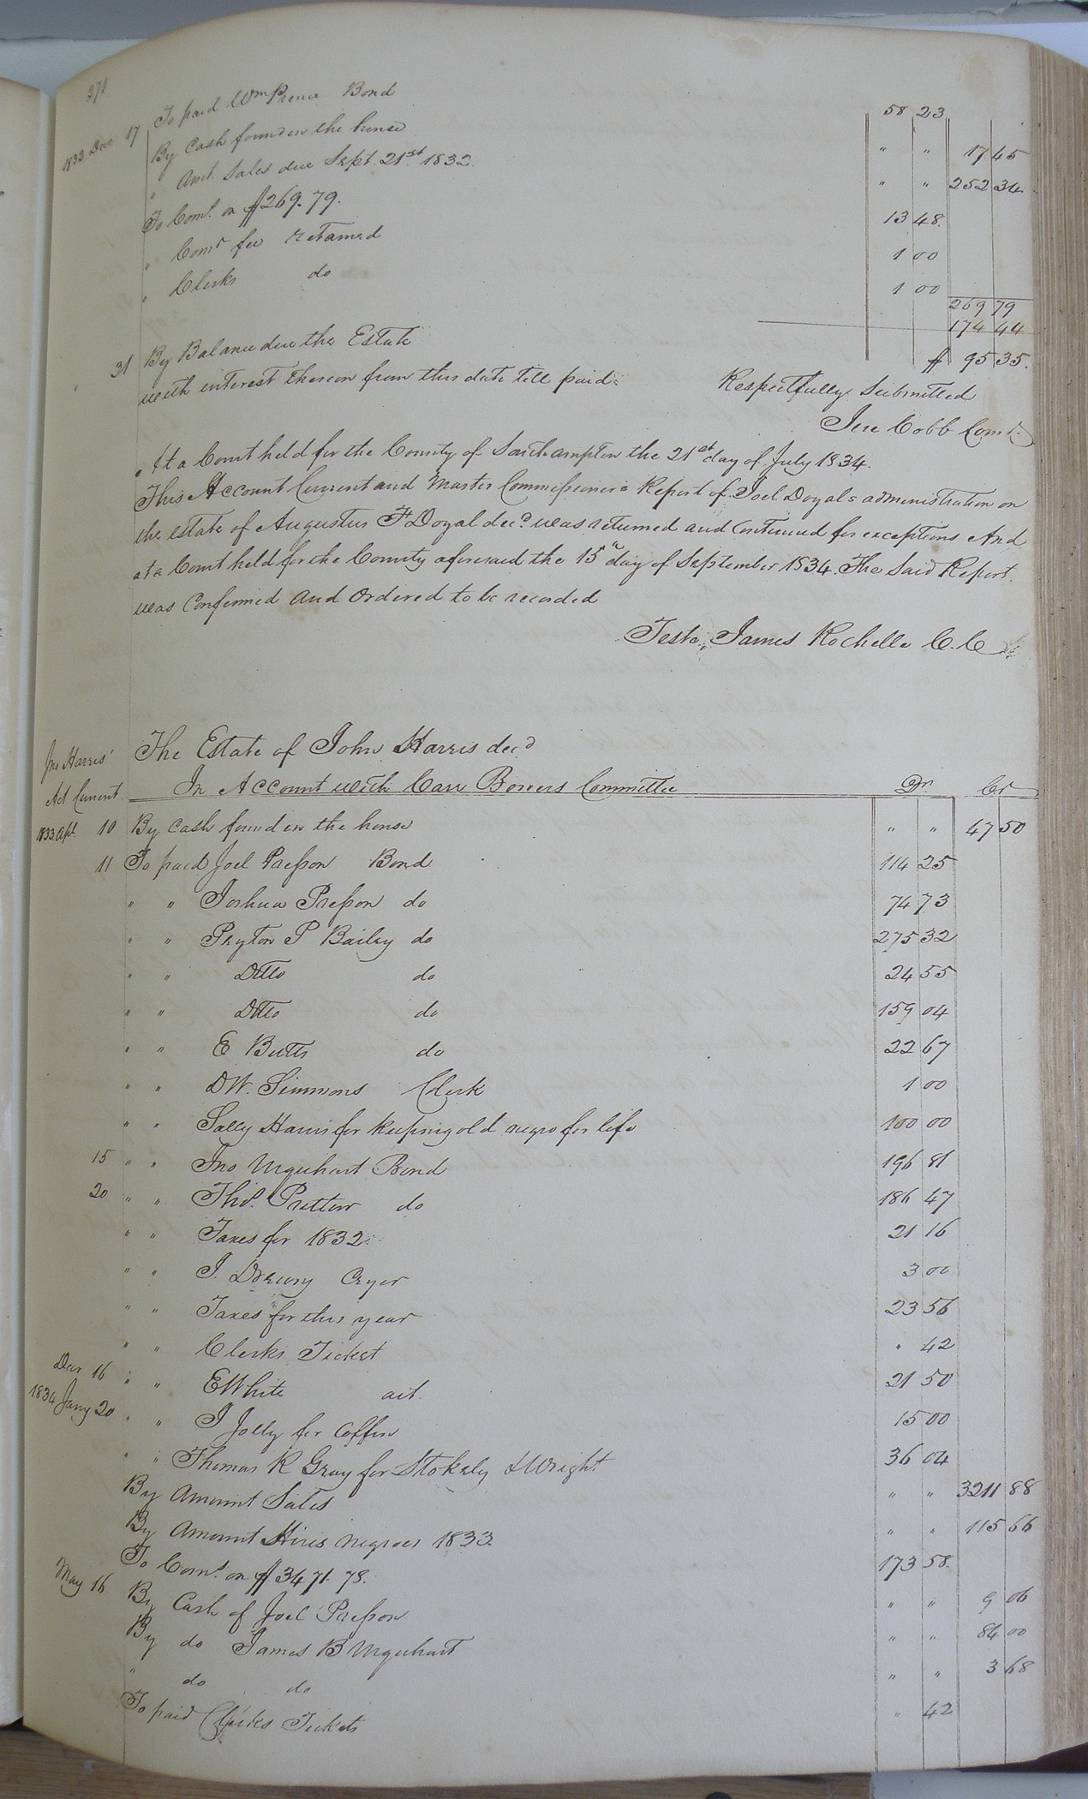 371
1832 Decr 17 To paid Wm Prince Bond 58 23
By Cash found in the house " " 17 45
" Amt. Sales due Sept. 21st 1832. " " 252 34
To Coms. on $269.79. 13 48.
" Comr fee retained 1 00
" Clerks do 1 00
269 79
174 44
31 By Balance due the Estate $ 95 35.
with interest thereon from this date till paid.
Respectfully Submitted
Jere Cobb Comr.
At a Court held for the County of Southampton the 21st day of July 1834.
This Account Current and Master Commissioner's Report of Joel Doyal's administration on
the estate of Augustus F Doyal decd was returned and Continued for exceptions And
at a Court held for the County aforesaid the 15th day of September 1834. The Said Report
was Confirmed and Ordered to be recorded
Teste, James Rochelle C.C
Jno Harris' Act Current
The Estate of John Harris decd
In Account with Carr Bowers Committee Dr Cr
1833 Apl 10 By Cash found in the house " " 47 50
11 To paid Joel Presson Bond 114 25
" " Joshua Presson do 74 73
" " Peyton P Bailey do 275 32
" " Ditto do 24 55
" " Ditto do 159 04
" " E Butts do 22 67
" " D W. Simmons Clerk 1 00
" " Sally Harris for keeping old negro for life 100 00
15 " " Jno Urquhart Bond 196 81
20 " " Thos. Pretlow do 186 47
" " Taxes for 1832. 21 16
" " J. Drewry Cryer 3 00
" " Taxes for this year 23 56
" " Clerks Ticket " 42
Decr 16 " " E White act. 21 50
1834 Jany 20 " " J Jolly for Coffin 15 00
" " Thomas R Gray for Stokely & Wright 36 04
By Amount Sales " " 3211 88
By Amount Hires negroes 1833 " " 115 66
To Coms. on $3471.78. 173 58.
May 16 By Cash of Joel Presson " " 9 06
By do James B Urquhart " " 84 00
" do do " " 3 68
To paid Clerks Tickets " 42